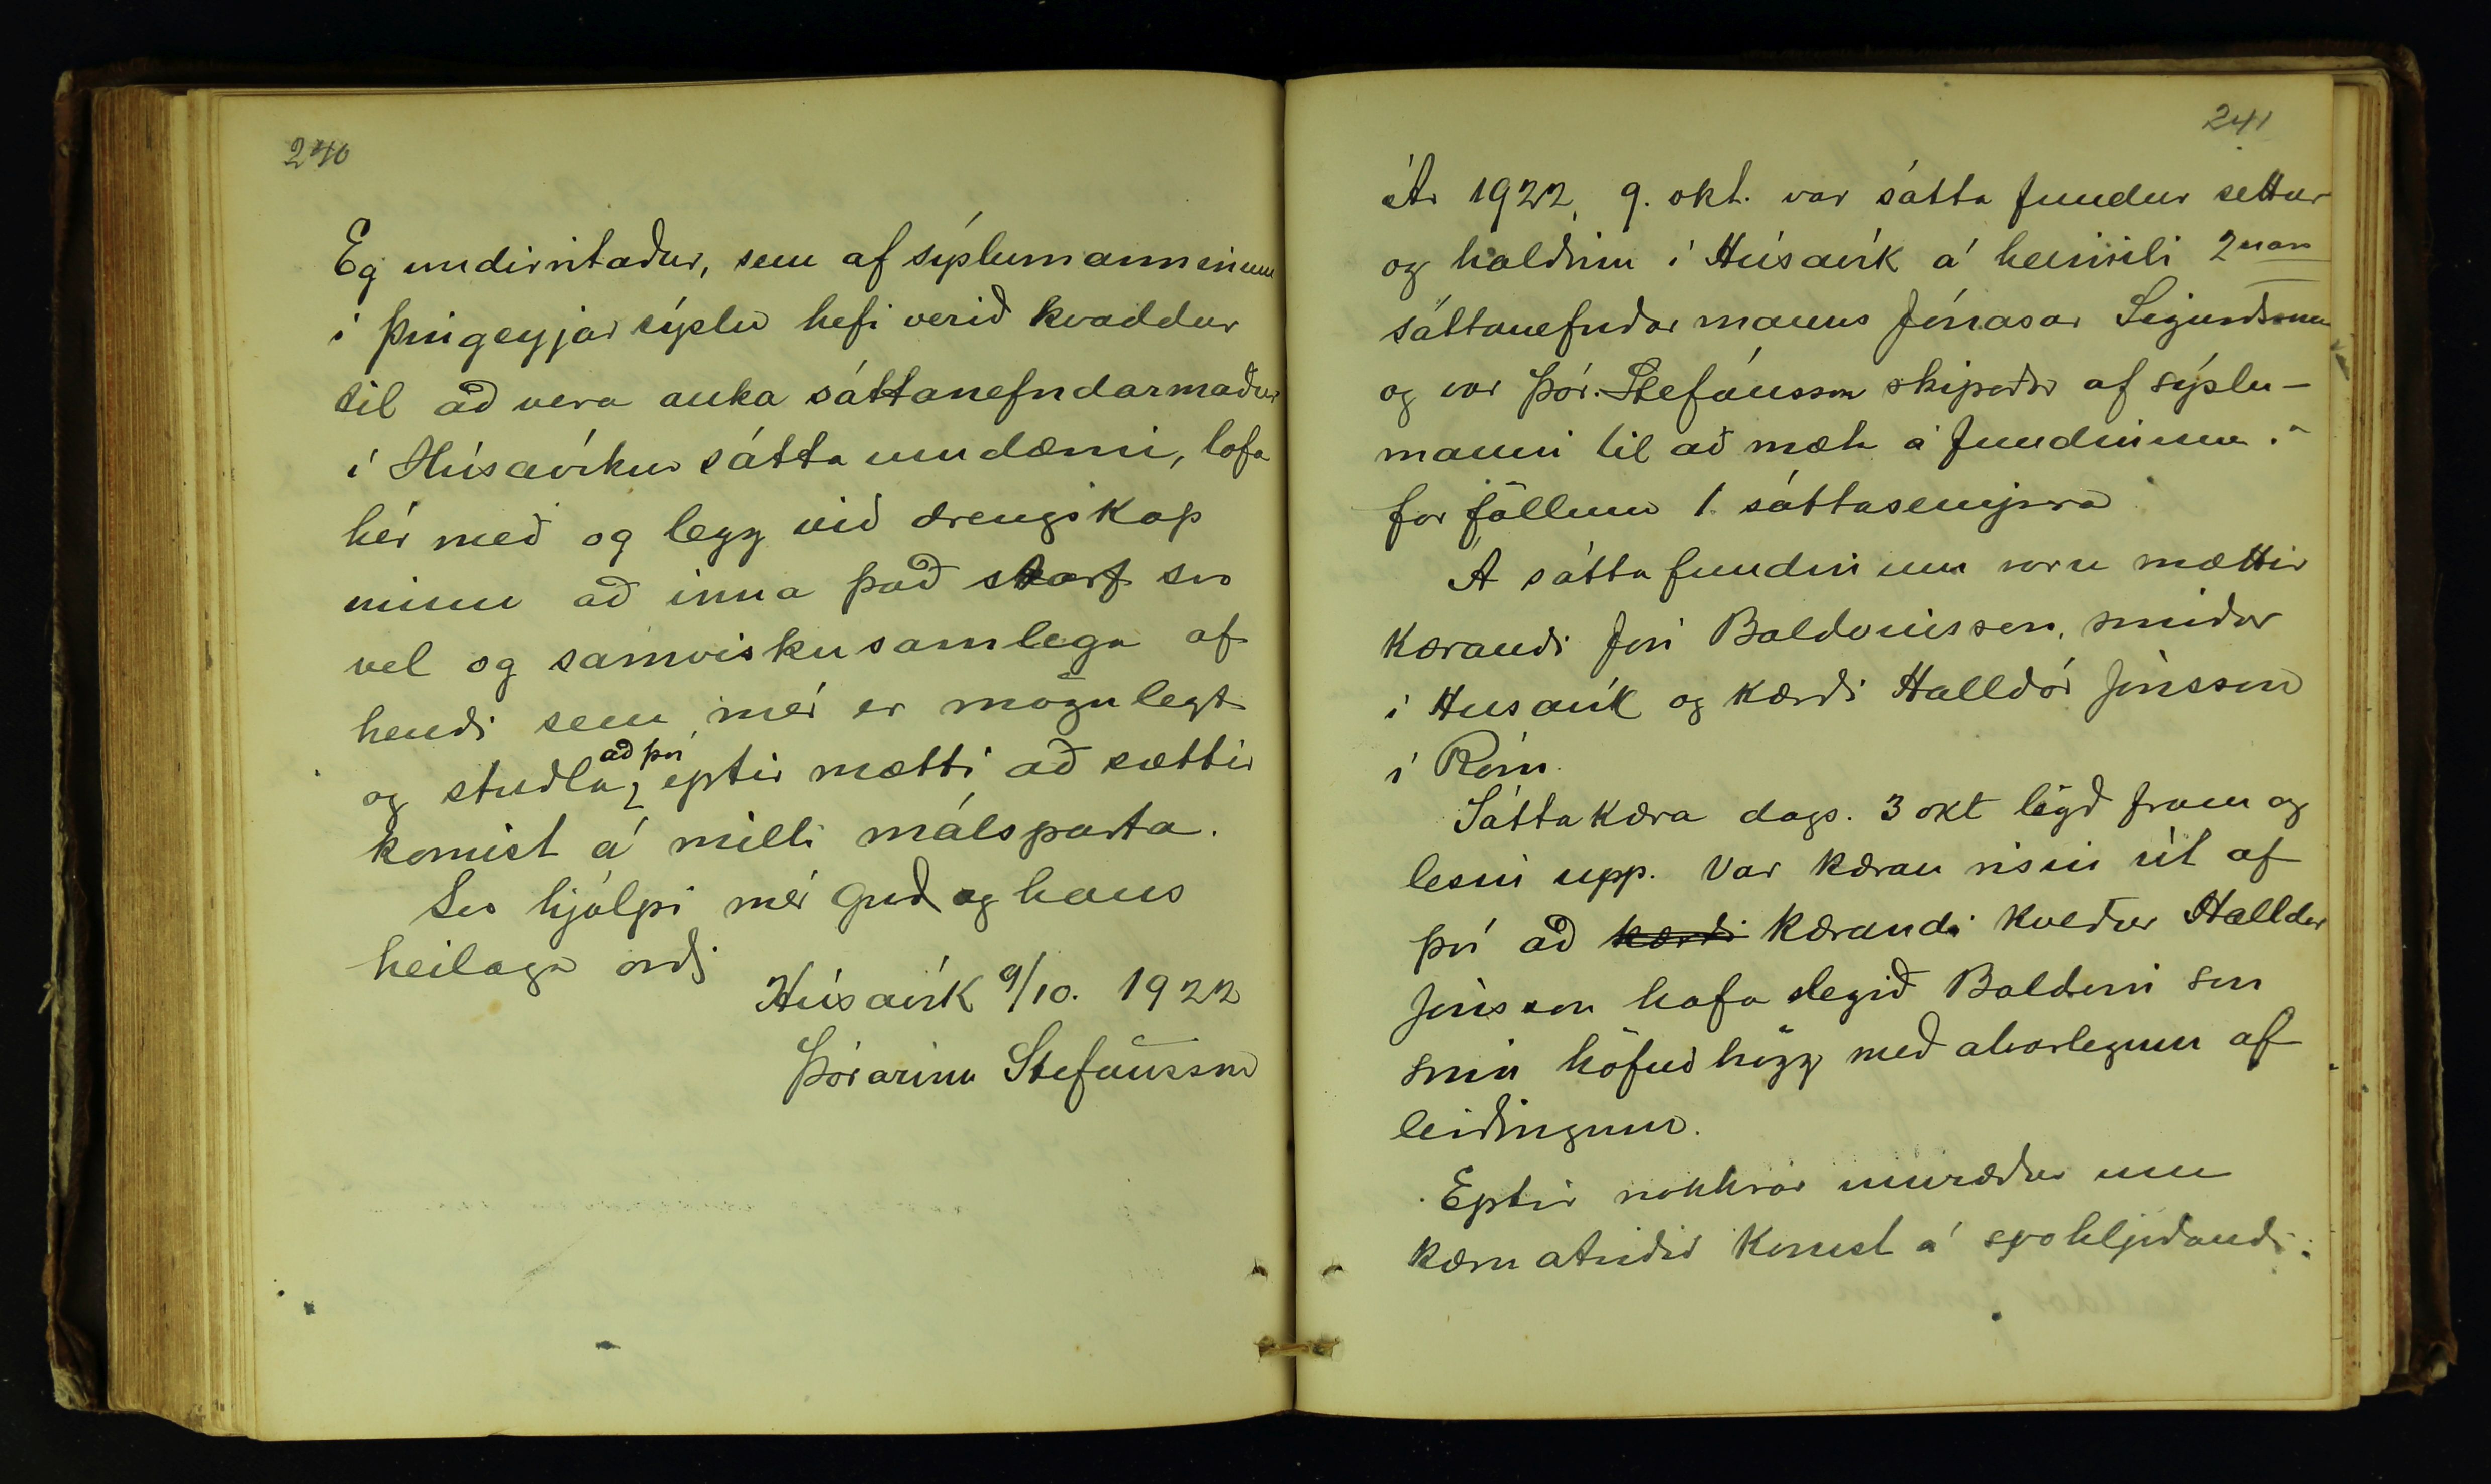 240
Eg undirritaður, sem af sýslumanninum
í Þingeyjarsýslu hefi verið kvaddur
til að vera auka sáttanefndarmaður
í Húsavíkur sátta umdæmi, lofa
hér með og legg við drengskap
minn að inna það starf svo
vel og samviskusamlega af
hendi sem mér er mögulegt
og stuðla að því eptir mætti að sættir
komist á milli málsparta.
Svo hjálpi mér Guð og hans
heilaga orð
Húsavík 9/10. 1922
Þórarinn Stefánsson
241
Ár 1922, 9. okt. var sátta fundur settur
og haldinn í Húsavík á heimili 2nars
sáttanefndar manns Jónasar Sigurðssonar
og var Þór. Stefánsson skipaður af sýslu-
manni til að mæta á fundinum í
for föllum 1. sáttasemjara
Á sátta fundinum voru mættir
Kærandi Jón Baldvinsson, smiður
í Húsavík og kærði Halldór Jónsson
í Róm.
Sáttakæra dags. 3 okt lögð fram og
lesin upp. Var kæran risin út af
því að kærði kærandi kveður Halldór
Jónsson hafa slegið Baldvin son
sinn höfuðhögg með alvarlegum af
leiðingum.
Eptir nokkrar umræður um
kæru atriðið komst á svohljóðandi: